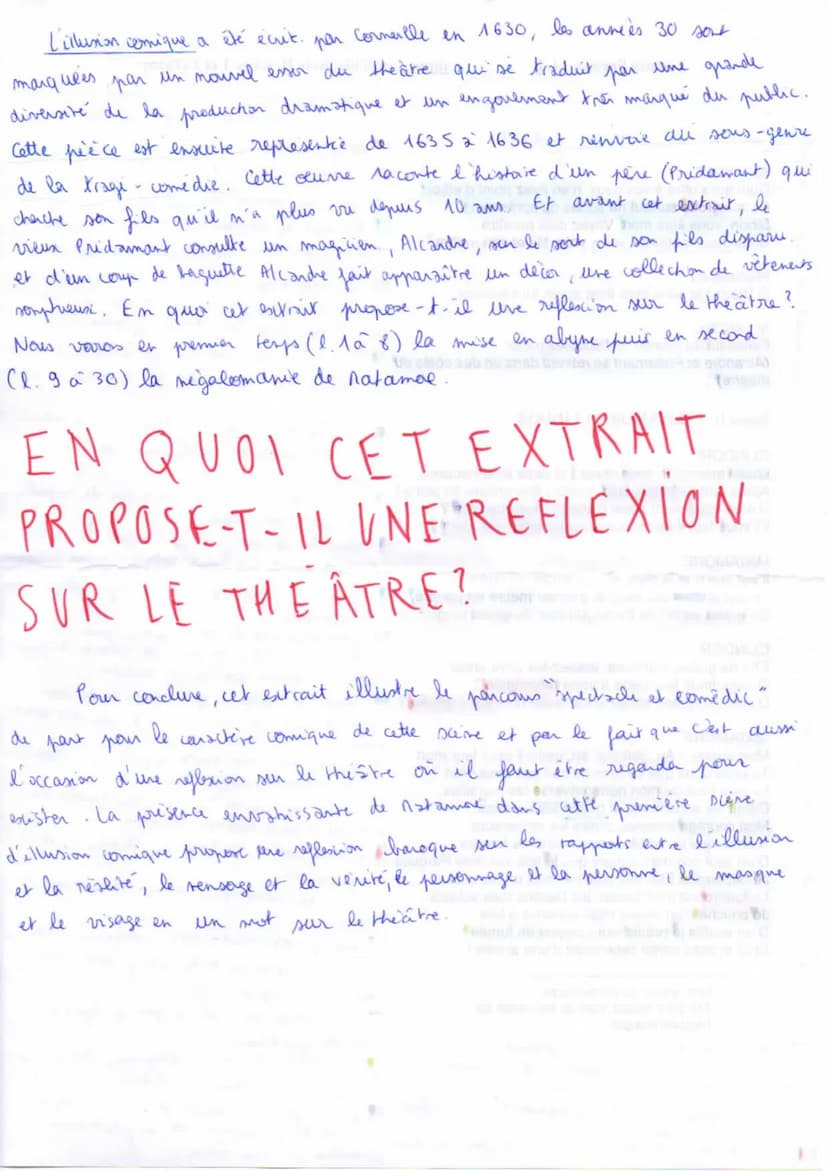 L'illusion comique a été écrit. par Corneille en 1630, les années 30 sont
marquées par un nouvel essor du theâtre qui se traduit par une grande
diversité de la production dramatique et un engouement très marqué du public.
Cette pièce est ensuite representée de 1635 à 1636 et renvoie au sous-genre
de la tragi-comédie. Cette oeuvre raconte l'histoire d'un père (Pridamant) qui
cherche son fils qu'il n'a plus vu depuis 10 ans. Et avant cet extrait, le
vieux Pridamant consulte un magicien, Alcandre, sur le sort de son fils disparu.
et d'un coup de baguette Alcandre fait apparaître un décor, une collection de vêtements
somptueux. En quoi cet extrait propose-t-il une reflexion sur le théâtre?
Nous verrons en premier temps (l. 1 à 8) la mise en abyme puis en second
(l. 9 à 30) la mégalomanie de Matamore.
EN QUOI CET EXTRAIT
PROPOSE-T-IL UNE REFLEXION
SUR LE THEÂTRE?
Pour conclure, cet extrait illustre le parcours "spectacle et comédie"
de part pour le caractère comique de cette scène et par le fait que c'est aussi
l'occasion d'une reflexion sur le théâtre où il faut être regarda pour
exister. La présence envahissante de Matamore dans cette première scène
d'illusion comique propose une reflexion baroque sur les rapports entre l'illusion
et la réalité, le mensonge et la vérité, le personnage et la personne, le masque
et le visage en un mot sur le théâtre.